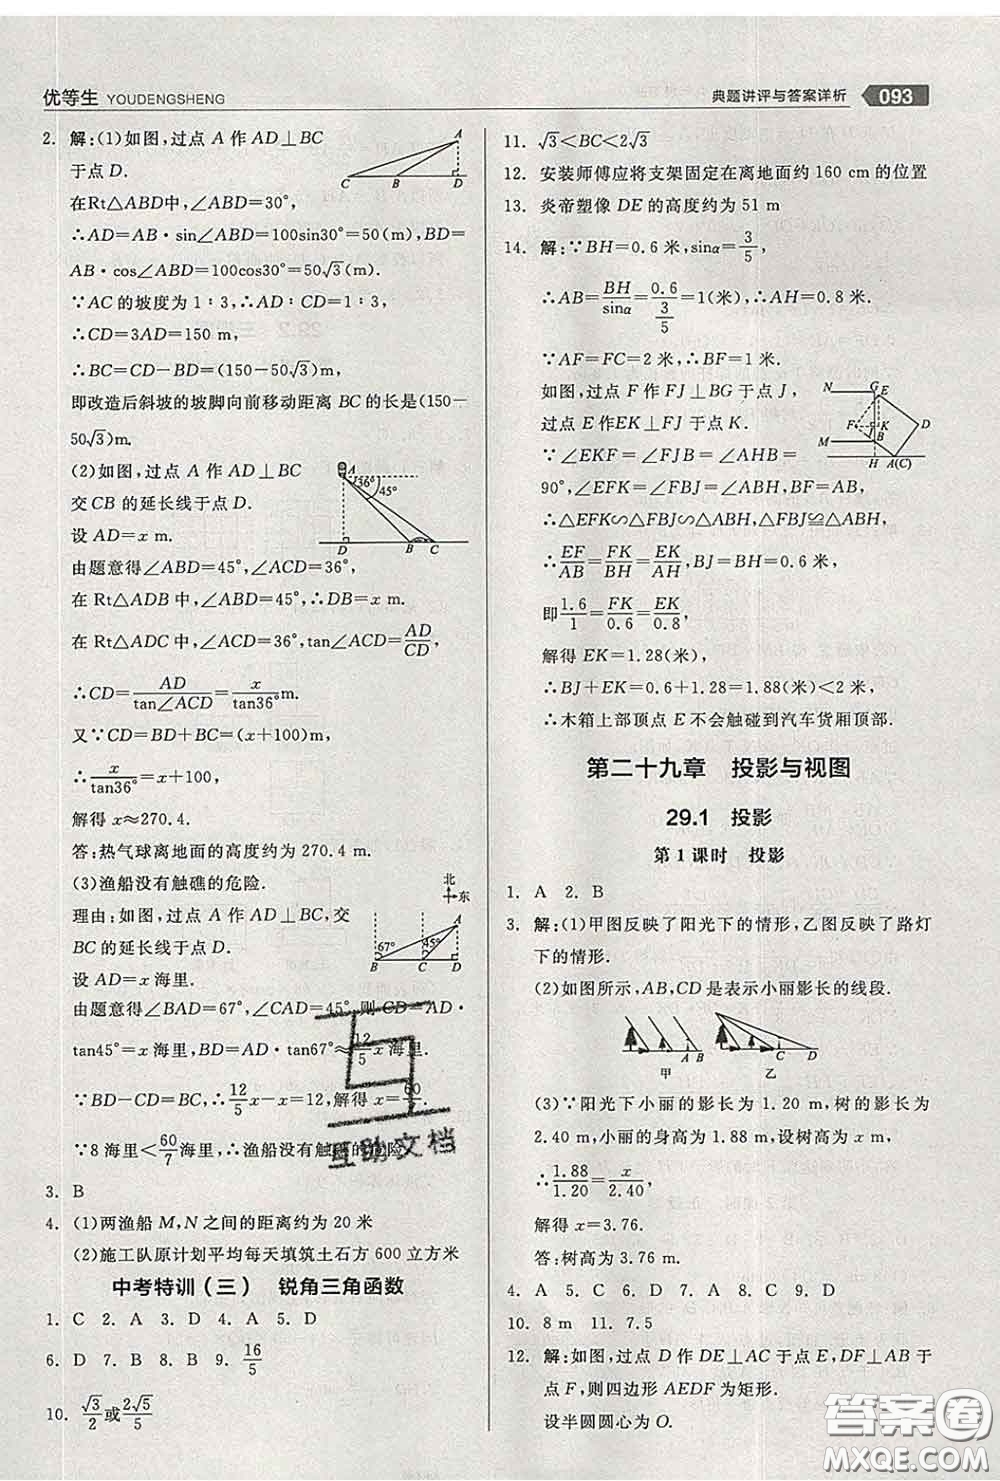 优等生 YOUDENGSHENG
典题讲评与答案详析 093
2. 解:(1)如图,过点 A 作 AD⊥BC
于点 D.
在Rt△ABD中,∠ABD=30°,
∴AD=AB·sin∠ABD=100sin30°=50(m),BD=
AB·cos∠ABD=100cos30°=50√3(m).
∵AC的坡度为 1∶3,∴AD∶CD=1∶3,
∴CD=3AD=150 m,
∴BC=CD-BD=(150-50√3)m.
即改造后斜坡的坡脚向前移动距离 BC 的长是(150-
50√3)m.
(2)如图,过点 A 作 AD⊥BC
交 CB 的延长线于点 D.
设 AD=x m.
由题意得∠ABD=45°,∠ACD=36°,
在 Rt△ADB 中,∠ABD=45°,∴DB=x m.
在 Rt△ADC 中,∠ACD=36°,tan∠ACD=AD/CD,
∴CD=AD/tan∠ACD=x/tan36° m.
又∵CD=BD+BC=(x+100)m,
∴x/tan36°=x+100,
解得 x≈270.4.
答:热气球离地面的高度约为 270.4 m.
(3)渔船没有触礁的危险.
理由:如图,过点 A 作 AD⊥BC,交
BC 的延长线于点 D.
设 AD=x 海里.
由题意得∠BAD=67°,∠CAD=45°,则 CD=AD·
tan45°=x 海里,BD=AD·tan67°≈12/5 x 海里.
∵BD-CD=BC,∴12/5 x-x=12,解得 x=60/7.
∵8 海里<60/7海里,∴渔船没有触礁的危险.
3. B
4. (1)两渔船 M,N 之间的距离约为 20 米
(2)施工队原计划平均每天填筑土石方 600 立方米
中考特训(三) 锐角三角函数
1. C 2. A 3. D 4. A 5. D
6. D 7. B 8. B 9. 16/5
10. √3/2或2√5/5
11. √3<BC<2√3
12. 安装师傅应将支架固定在离地面约 160 cm 的位置
13. 炎帝塑像 DE 的高度约为 51 m
14. 解:∵BH=0.6 米,sinα=3/5,
∴AB=BH/sinα=0.6/(3/5)=1(米),∴AH=0.8 米.
∵AF=FC=2 米,∴BF=1 米.
如图,过点 F 作 FJ⊥BG 于点 J,
过点 E 作EK⊥FJ 于点 K.
∵∠EKF=∠FJB=∠AHB=
90°,∠EFK=∠FBJ=∠ABH,BF=AB,
∴△EFK∽△FBJ∽△ABH,△FBJ≌△ABH,
∴EF/AB=FK/BH=EK/AH,BJ=BH=0.6 米,
即1.6/1=FK/0.6=EK/0.8,
解得 EK=1.28(米),
∴BJ+EK=0.6+1.28=1.88(米)<2 米,
∴木箱上部顶点 E 不会触碰到汽车货厢顶部.
第二十九章 投影与视图
29.1 投影
第 1 课时 投影
1. A 2. B
3. 解:(1)甲图反映了阳光下的情形,乙图反映了路灯
下的情形.
(2)如图所示,AB,CD 是表示小丽影长的线段.
A B C D
甲 乙
(3)∵阳光下小丽的影长为 1.20 m,树的影长为
2.40 m,小丽的身高为 1.88 m,设树高为 x m,
∴1.88/1.20=x/2.40,
解得 x=3.76.
答:树高为 3.76 m.
4. A 5. C 6. D 7. A 8. D 9. A
10. 8 m 11. 7.5
12. 解:如图,过点 D 作 DE⊥AC 于点 E,DF⊥AB 于
点 F,则四边形 AEDF 为矩形.
设半圆圆心为 O.
互助文档
答案圈
MXQE.COM